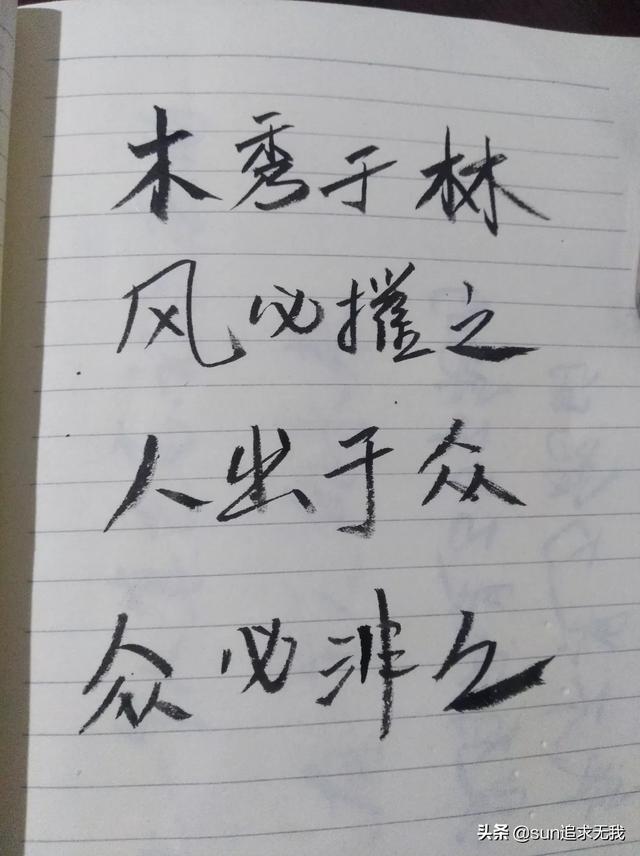 木秀于林
风必摧之
人出于众
众必非之
头条 @sun追求无我